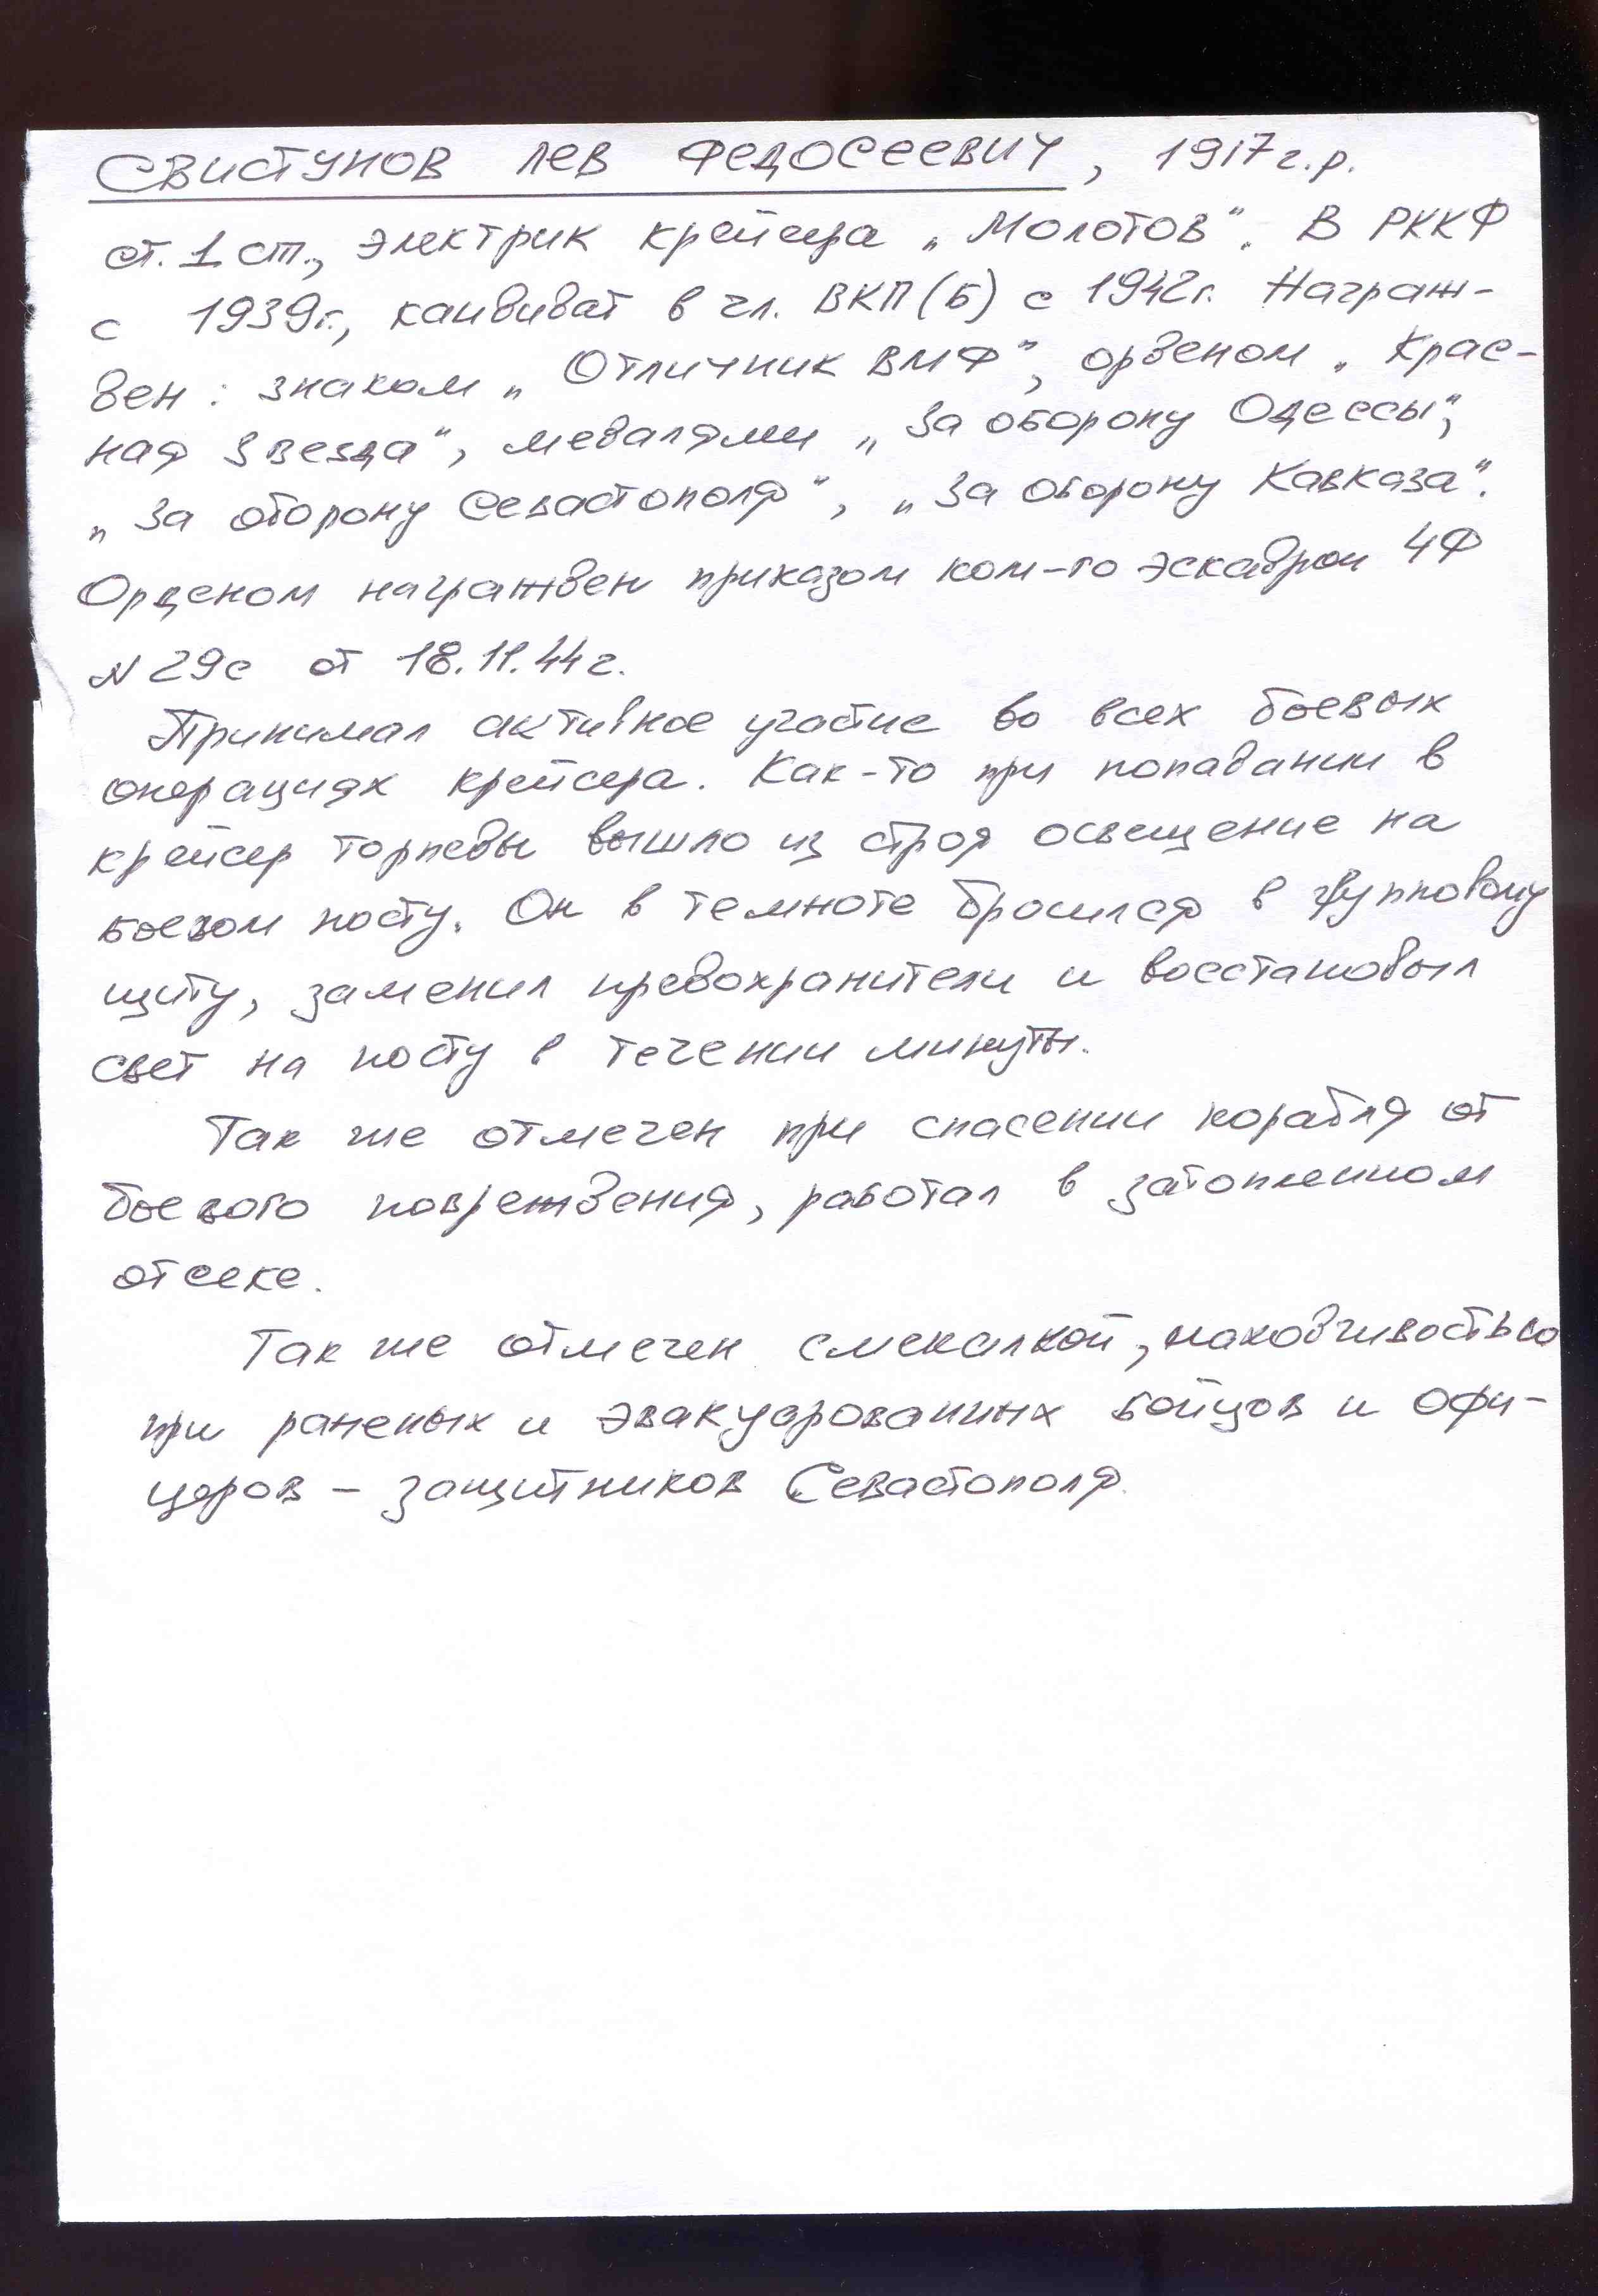 СВИСТУНОВ ЛЕВ ФЕДОСЕЕВИЧ, 1917 г.р.
ст. 1 ст., электрик крейсера „Молотов“. В РККФ
с 1939г., кандидат в чл. ВКП(б) с 1942г. Награж-
ден: знаком „Отличник ВМФ“, орденом „Крас-
ная Звезда“, медалями „За оборону Одессы“,
„За оборону Севастополя“, „За оборону Кавказа“.
Орденом награжден приказом ком-го эскадрои ЧФ
N 29с от 18.11.44г.
Принимал активное участие во всех боевых
операциях крейсера. Как-то при попадании в
крейсер торпеды вышло из строя освещение на
боевом посту. Он в темноте бросился в групповому
щиту, заменил предохранители и восстановил
свет на посту в течении минуты.
Так же отмечен при спасении корабля от
боевого повреждения, работал в затопленном
отсеке.
Так же отмечен смекалкой, находчивостью
при раненых и эвакуированных бойцов и офи-
церов – защитников Севастополя.